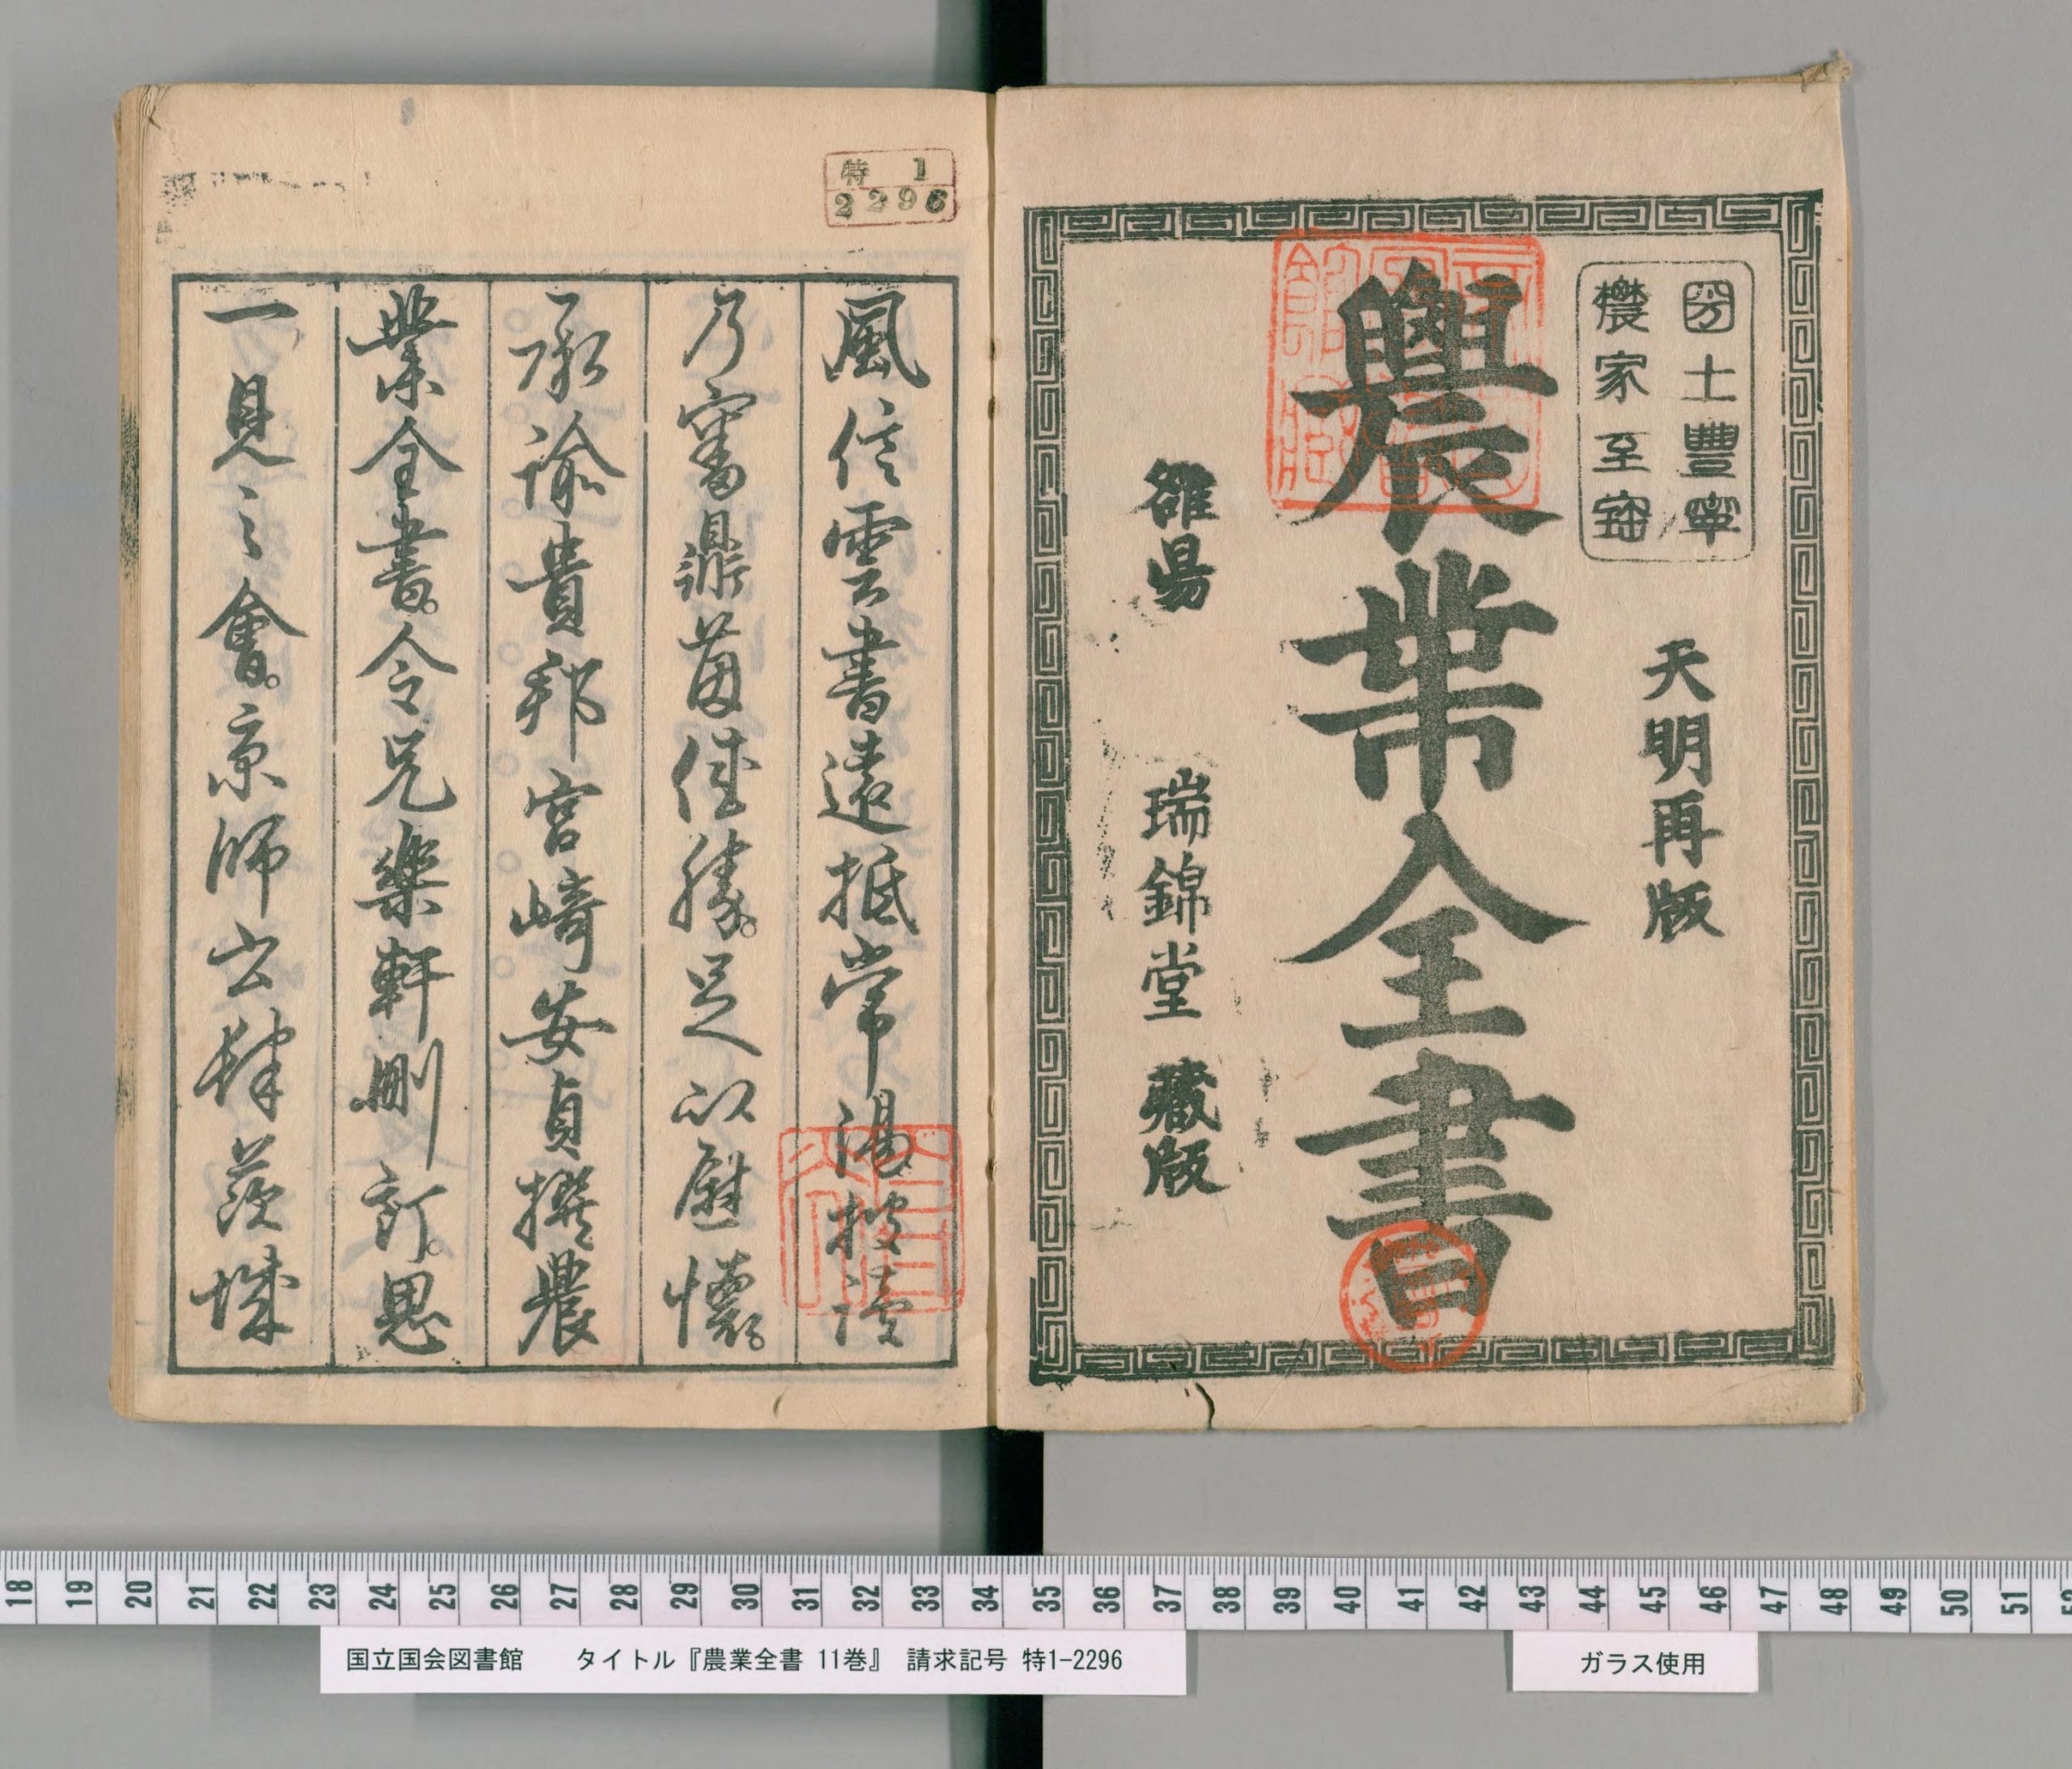 国土豐寧
農家至寶
天明再版
農業全書
雒陽 瑞錦堂 藏版
特 1
2296
風信雲書遠抵常陽披讀
乃審鼎茵佳勝。足以慰懷。
承諭貴邦宮崎安貞撰農
業全書。令兄樂軒刪訂。思
一見之會。京師書肆茨城
18 19 20 21 22 23 24 25 26 27 28 29 30 31 32 33 34 35 36 37 38 39 40 41 42 43 44 45 46 47 48 49 50 51
国立国会図書館 タイトル『農業全書 11巻』 請求記号 特1-2296
ガラス使用